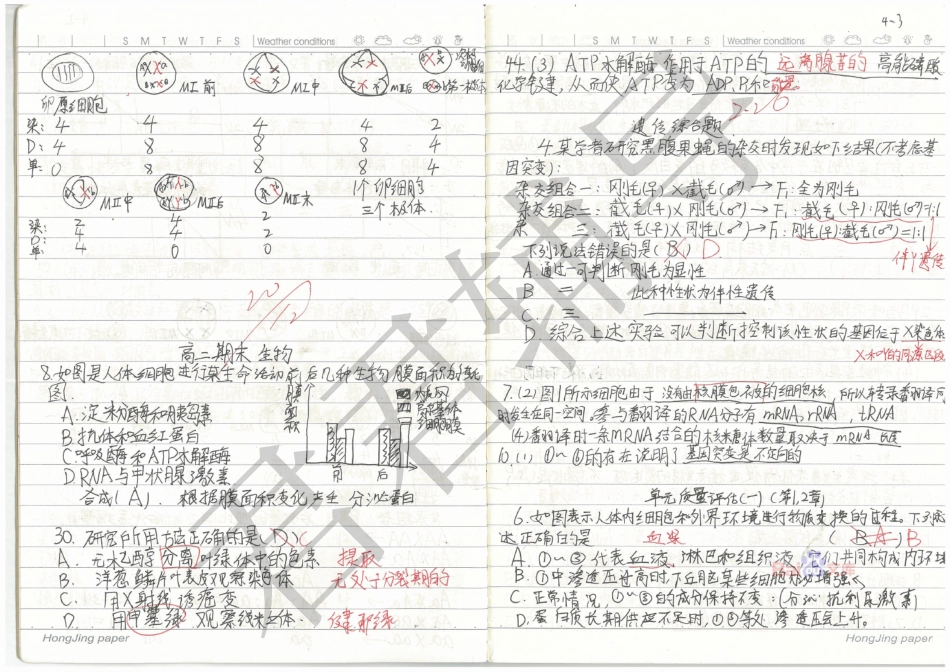 S M T W T F S Weather conditions
MⅠ前 MⅠ中 MⅠ后
卵原细胞
染: 4 4 4 4 2
D: 4 8 8 8 4
单: 0 8 8 8 4
MⅡ中 MⅡ后 MⅡ末 1个卵细胞
三个极体.
染: 2 4 2
D: 4 4 2
单: 4 0 0
20/12
高二期末 生物
8.如图是人体细胞进行某生命活动前后几种生物膜面积的
图.
膜面积
内质网
高尔基体
细胞膜
前 后
A.淀粉酶和胰岛素
B.抗体和血红蛋白
C.呼吸酶和ATP水解酶
D.RNA与甲状腺激素
合成(A). 根据膜面积变化产生 分泌蛋白
30. 研究所用方法正确的是(D)C
A. 无水乙醇 分离 叶绿体中的色素 提取
B. 洋葱鳞片叶表皮观察染色体 无处于分裂期的
C. 用X射线诱癌变
D. 用甲基绿 观察线粒体. 健那绿
HongJing paper
4-3
S M T W T F S Weather conditions
44.(3) ATP水解酶 作用于ATP的 远离腺苷的 高能磷酸
化学键, 从而使 ATP变为 ADP, Pi和能量.
2-20
遗传综合题.
4.某学者研究黑腹果蝇的杂交时发现如下结果(不考虑基
因突变):
杂交组合一: 刚毛(♀)×截毛(♂)→F₁:全为刚毛
杂交组合二: 截毛(♀)×刚毛(♂)→F₁:截毛(♀):刚毛(♂)=1:1
杂 三: 截毛(♀)×刚毛(♂)→F₁:刚毛(♀):截毛(♂)=1:1
下列说法错误的是(B) D. 伴Y遗传
A.通过一可判断刚毛为显性
B 二 此种性状为伴性遗传
C. 三
D. 综合上述实验可以判断控制该性状的基因位于X染色体
X和Y的同源区段
7.(2)图1所示细胞由于 没有由核膜包被的细胞核, 所以转录翻译同
时发生在同一空间,参与翻译的RNA分子有 mRNA, rRNA, tRNA
(4)翻译时一条mRNA结合的核糖体数量取决于 mRNA 长度
10.(1) ①～⑥的存在说明了 基因突变是不定向的
单元质量评估(一) (第1,2章)
6.如图表示人体内细胞和外界环境进行物质交换的过程. 下列表
达正确的是 血浆 (B A) B
A. ①～③代表血液, 淋巴和组织液, 它们共同构成内环境
B. ①中渗透压升高时,下丘脑某些细胞分泌增强
C. 正常情况, ①～③的成分保持不变: (分泌抗利尿激素)
D. 蛋白质长期供应不足时,①②等处渗透压会上升.
HongJing paper
君君辅导